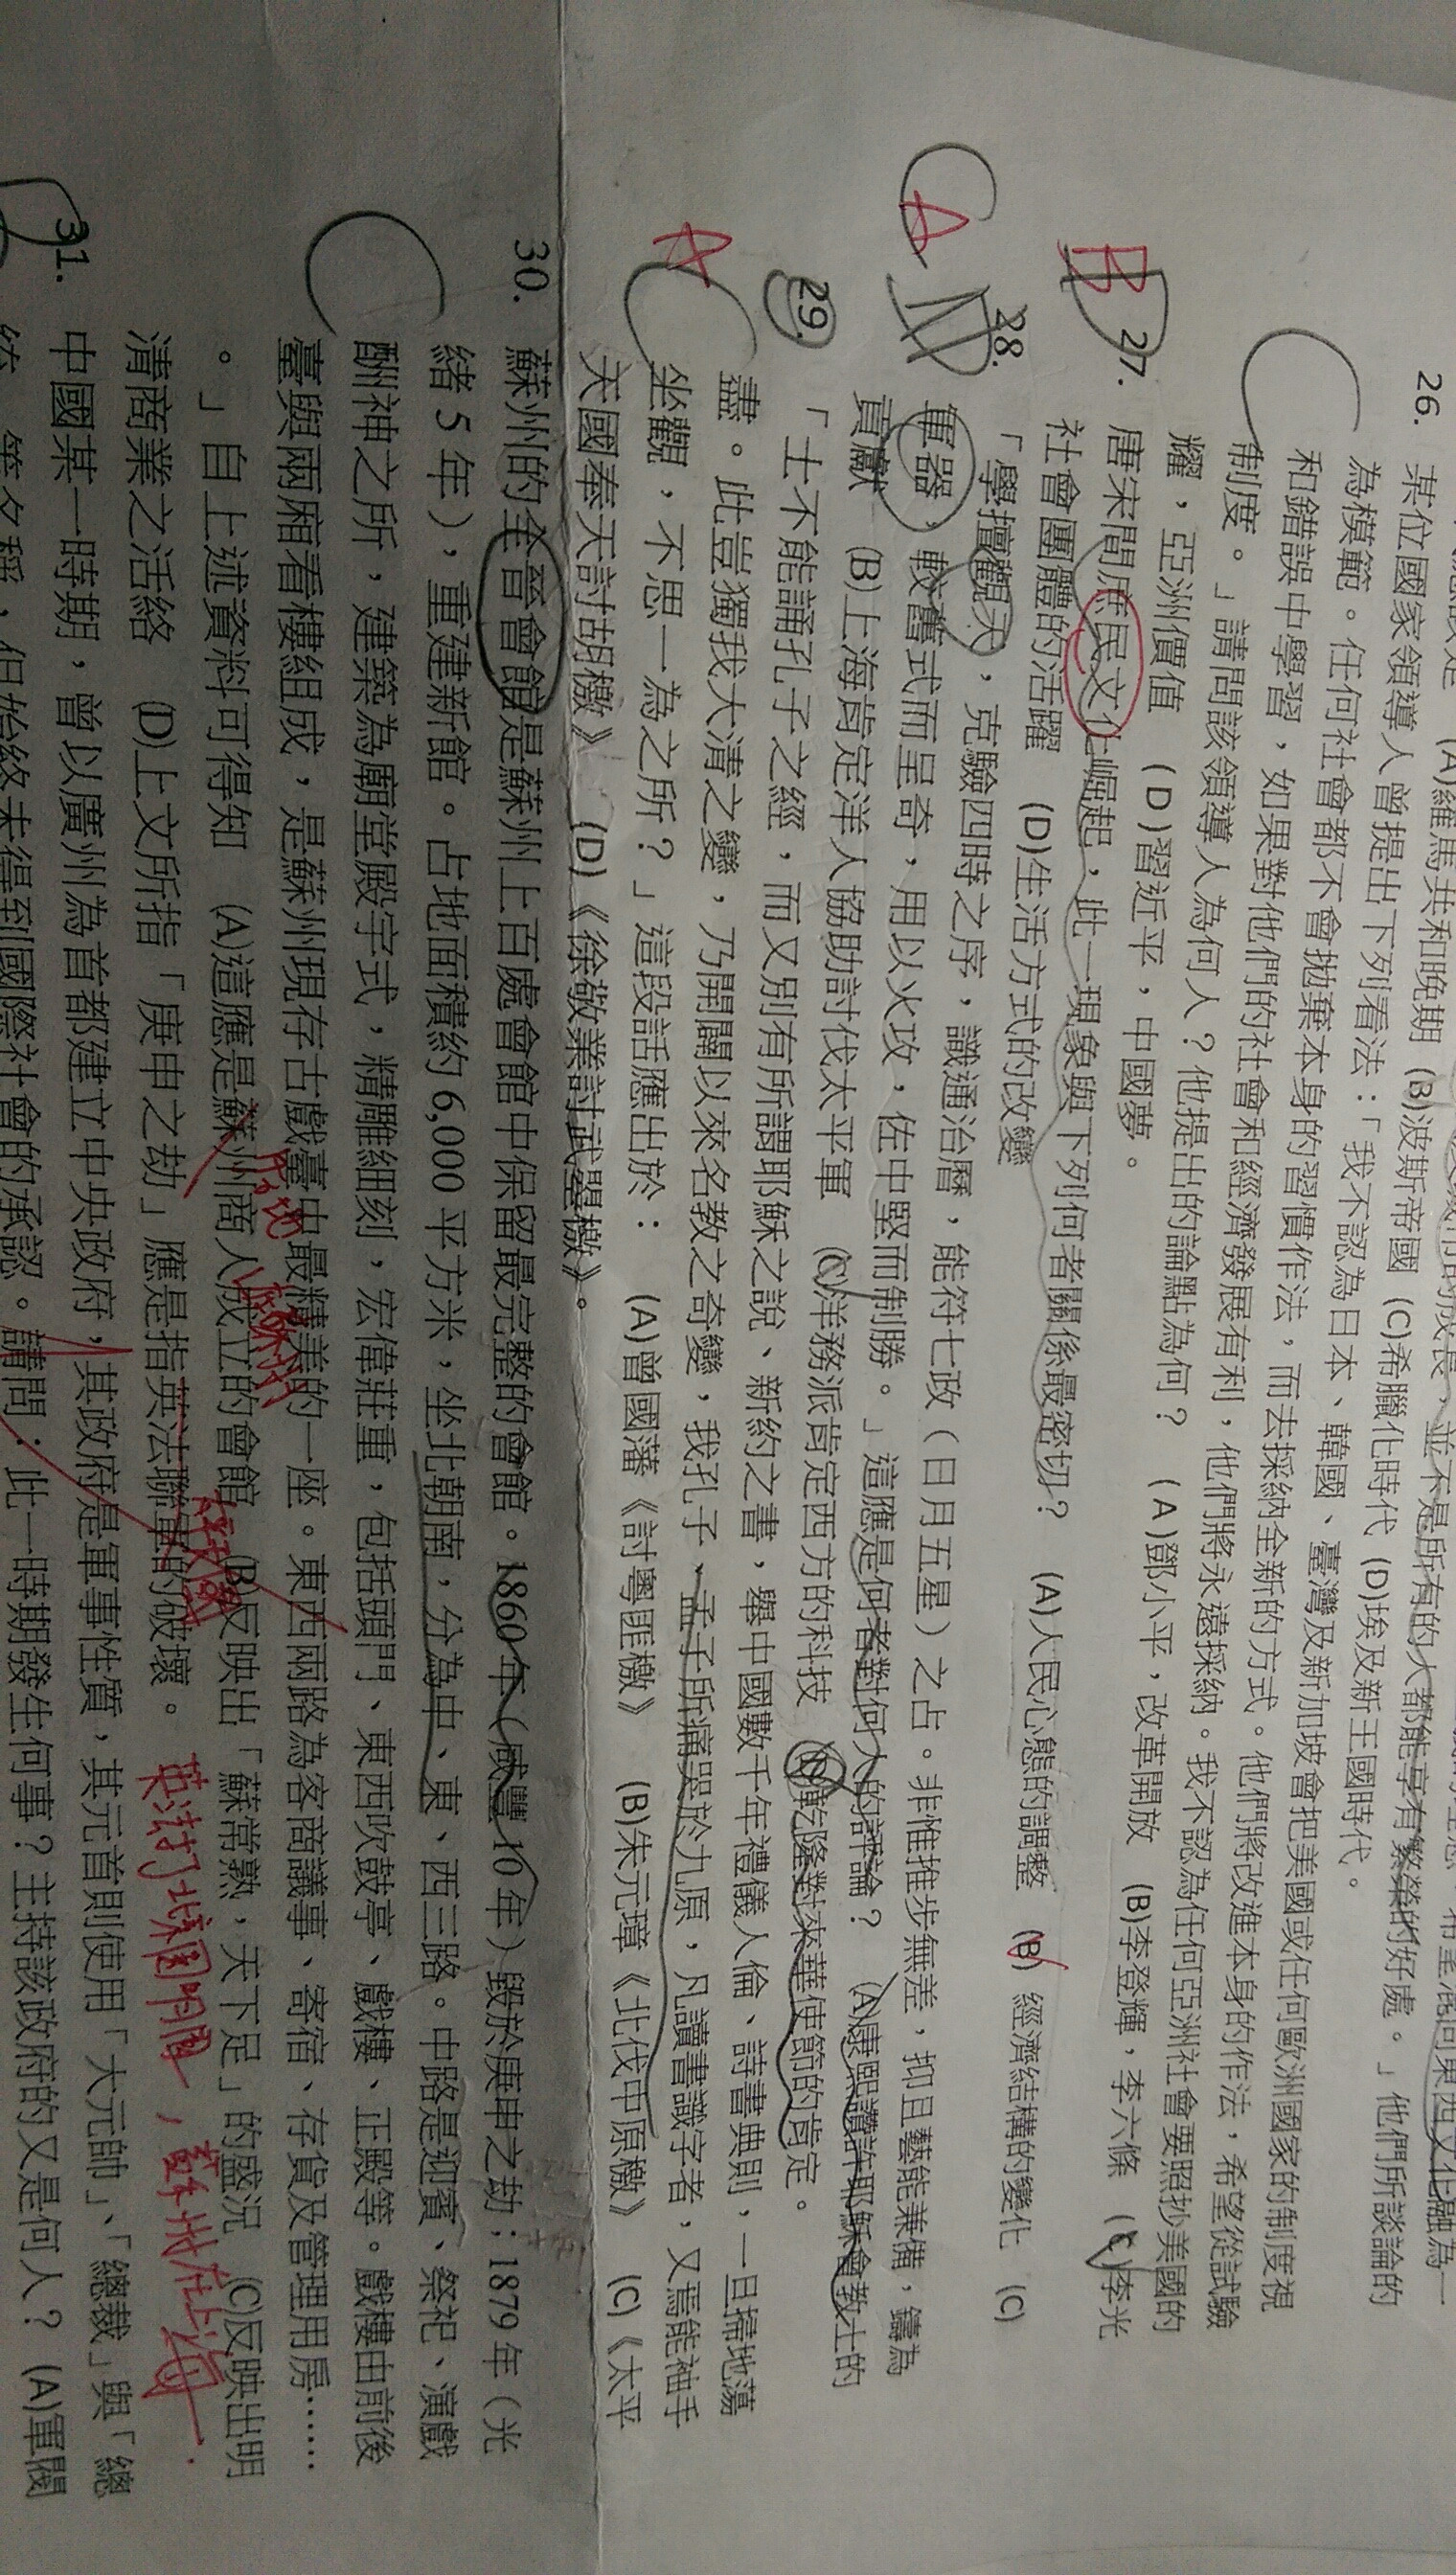 26. 某位國家領導人曾提出下列看法：「我不認為日本、韓國、臺灣及新加坡會把美國或任何歐洲國家的制度視
(A)羅馬共和晚期 (B)波斯帝國 (C)希臘化時代 (D)埃及新王國時代。
為模範。任何社會都不會拋棄本身的習慣作法，而去採納全新的方式。他們將改進本身的作法，希望從試驗
和錯誤中學習，如果對他們的社會和經濟發展有利，他們將永遠採納。我不認為任何亞洲社會要照抄美國的
制度。」請問該領導人為何人？他提出的論點為何？ (A)鄧小平，改革開放 (B)李登輝，李六條 (C)李光
耀，亞洲價值 (D)習近平，中國夢。
C
27. 唐宋間庶民文化崛起，此一現象與下列何者關係最密切？ (A)人民心態的調整 (B)經濟結構的變化 (C)
社會團體的活躍 (D)生活方式的改變
B
28. 「學擅觀天，克驗四時之序，識通治曆，能符七政（日月五星）之占。非惟推步無差，抑且藝能兼備，鑄為
軍器，較舊式而呈奇，用以火攻，佐中堅而制勝。」這應是何者對何人的評論？ (A)康熙讚許耶穌會教士的
貢獻 (B)上海肯定洋人協助討伐太平軍 (C)洋務派肯定西方的科技 (D)乾隆對來華使節的肯定。
A
29. 「士不能誦孔子之經，而又別有所謂耶穌之說、新約之書，舉中國數千年禮儀人倫、詩書典則，一旦掃地蕩
盡。此豈獨我大清之變，乃開闢以來名教之奇變，我孔子、孟子所痛哭於九原，凡讀書識字者，又焉能袖手
坐觀，不思一為之所？」這段話應出於： (A)曾國藩《討粵匪檄》 (B)朱元璋《北伐中原檄》 (C)《太平
天國奉天討胡檄》 (D)《徐敬業討武曌檄》。
A
30. 蘇州的全晉會館是蘇州上百處會館中保留最完整的會館。1860年（咸豐10年）毀於庚申之劫；1879年（光
緒5年），重建新館。占地面積約6,000平方米，坐北朝南，分為中、東、西三路。中路是迎賓、祭祀、演戲
酬神之所，建築為廟堂殿宇式，精雕細刻，宏偉莊重，包括頭門、東西吹鼓亭、戲樓、正殿等。戲樓由前後
臺與兩廂看樓組成，是蘇州現存古戲臺中最精美的一座。東西兩路為客商議事、寄宿、存貨及管理用房……
。」自上述資料可得知 (A)這應是蘇州商人成立的會館 (B)反映出「蘇常熟，天下足」的盛況 (C)反映出明
清商業之活絡 (D)上文所指「庚申之劫」應是指英法聯軍的破壞。
C
英法打北京圓明園，蘇州在上海
31. 中國某一時期，曾以廣州為首都建立中央政府，其政府是軍事性質，其元首則使用「大元帥」、「總裁」與「總
統」等名稱，但始終未得到國際社會的承認。請問：此一時期發生何事？主持該政府的又是何人？ (A)軍閥